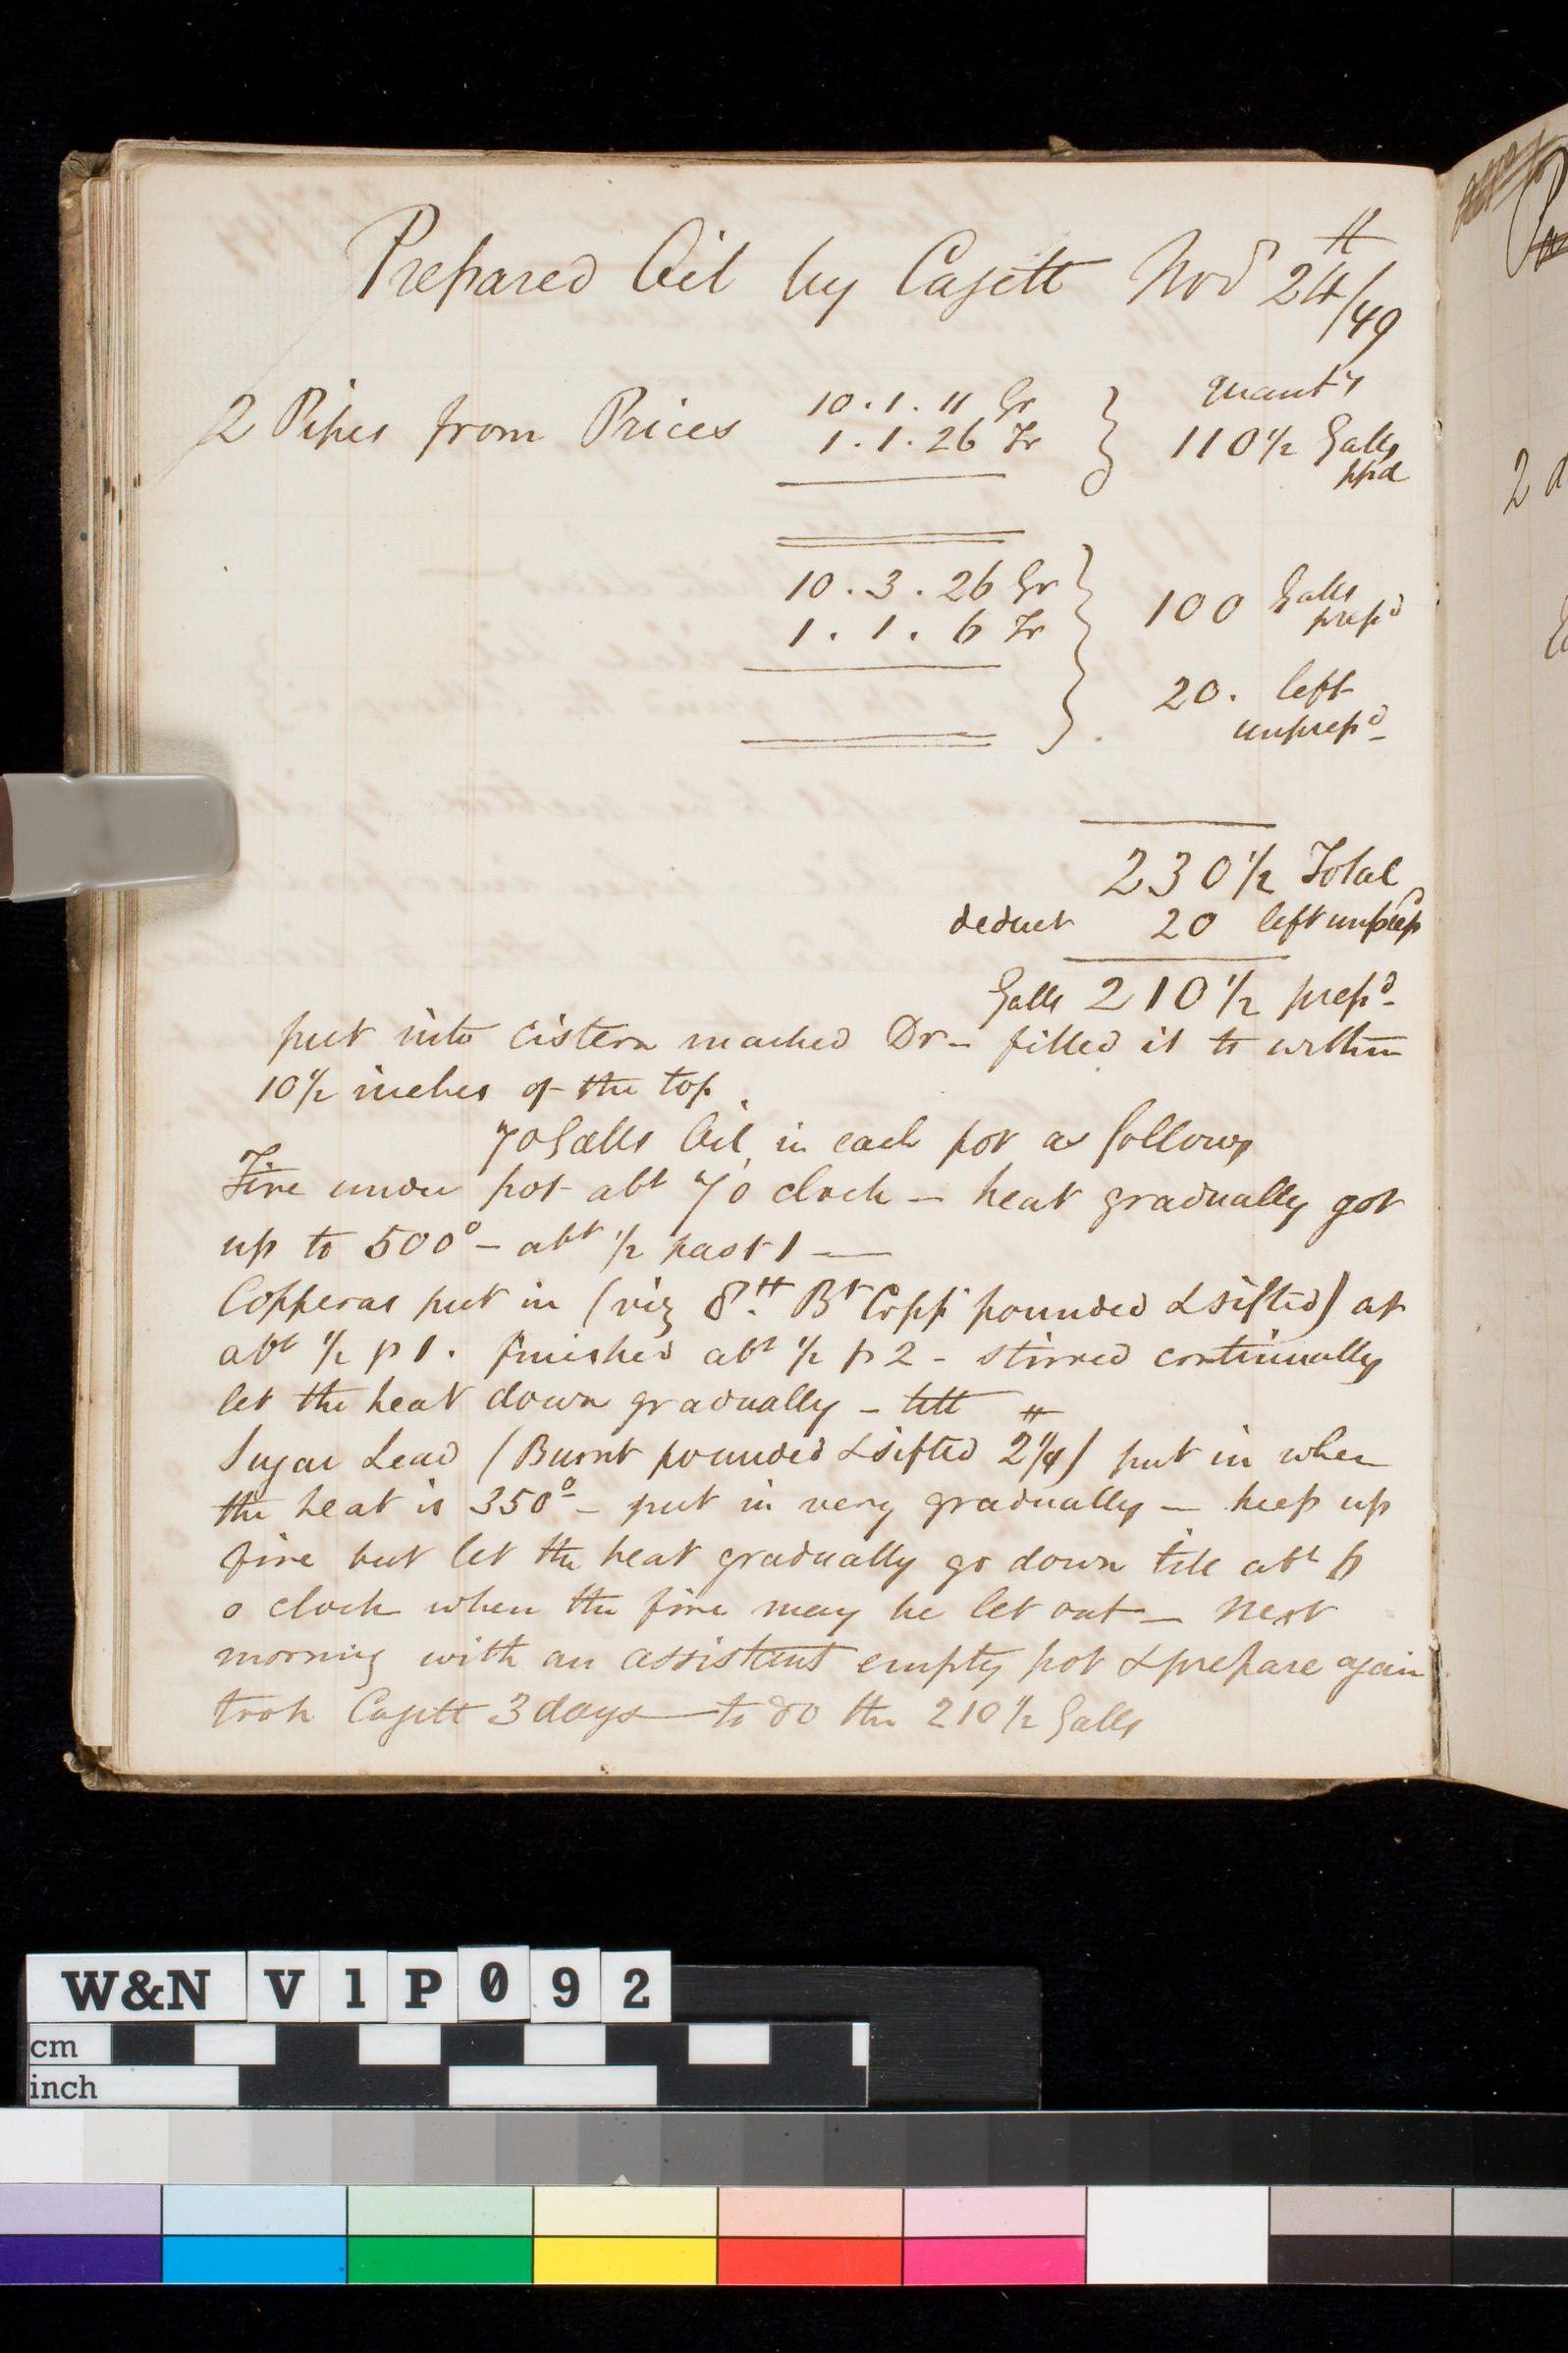 Prepared Oil by Cagett Novr 24/49
2 Pipes from Prices 10.1.11 Gr quanty
1.1.26 Tr 110½ Galls
ppd
10.3.26 Gr 100 Galls
1.1.6 Tr prepd
20. left
unprepd
230½ Total
deduct 20 left unprepd
Galls 210½ prepd
put into cistern marked Dr - filled it to within
10½ inches of the top.
70 Galls Oil, in each pot as follows
Fire under pot abt 7 o clock - heat gradually got
up to 500° - abt ½ past 1 —
Copperas put in (viz 8lb Bt Copp pounded & sifted) at
abt ½ p 1. finished abt ½ p 2 - stirred continually
let the heat down gradually - till
Sugar Lead (Burnt pounded & sifted 2¼lb) put in when
the heat is 350° - put in very gradually - keep up
fire but let the heat gradually go down till abt
o clock when the fire may be let out - Next
morning with an assistant empty pot & prepare again
took Cagett 3 days — to do the 210½ Galls
2
W&N V1P092
cm
inch